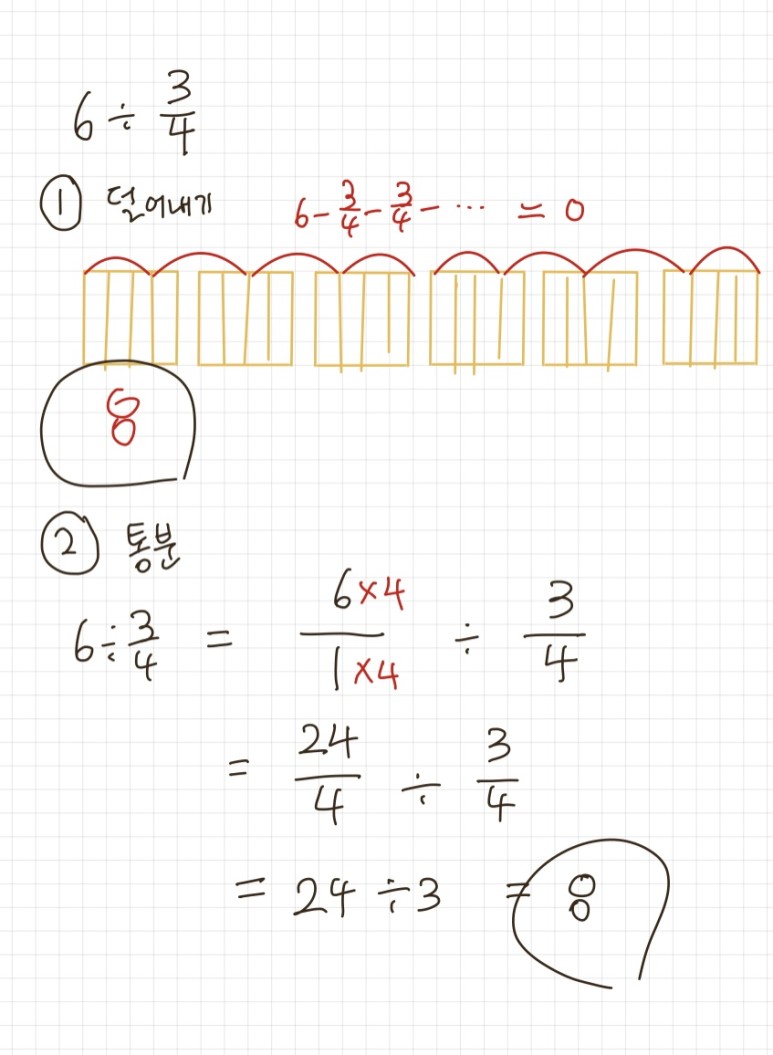 6 ÷ 3/4
① 덜어내기 6 - 3/4 - 3/4 - ⋯ = 0
8
② 통분
6 ÷ 3/4 = 6×4/1×4 ÷ 3/4
= 24/4 ÷ 3/4
= 24 ÷ 3 = 8